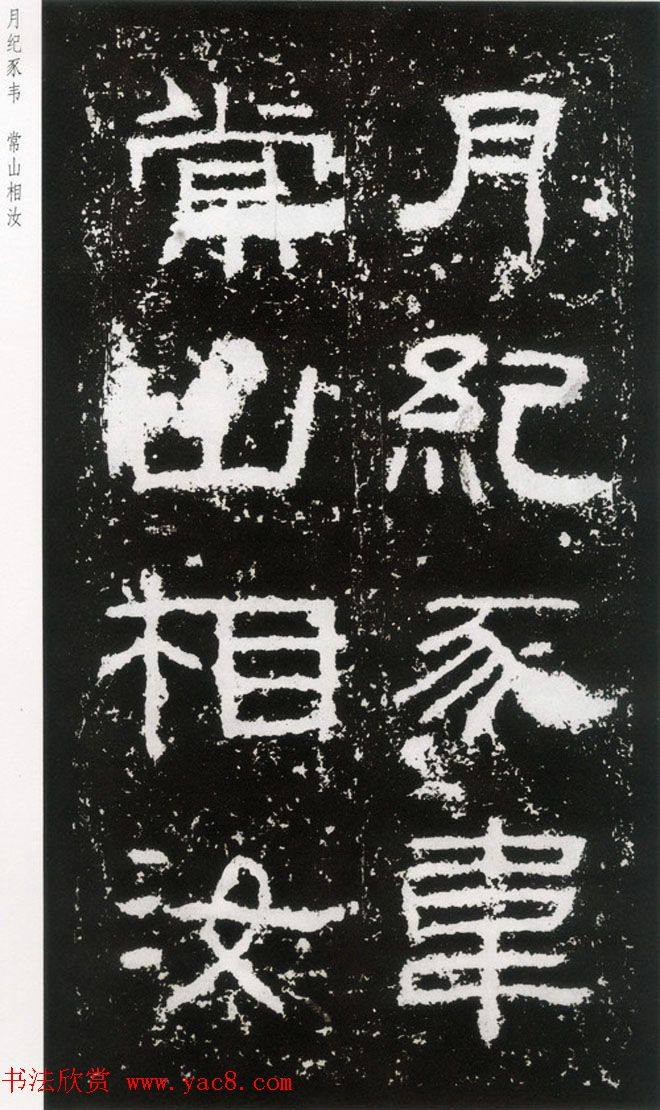 月纪豕韦 常山相汝
月紀豕韋
常山相汝
书法欣赏 www.yac8.com